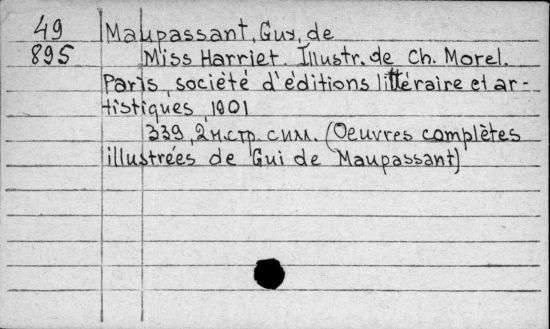 49 Maupassant, Guy, de
895 Miss Harriet. Illustr. de Ch. Morel.
Paris, société d'éditions littéraire et ar-
tistiques, 1901
339, 2 н.стр. с илл. (Oeuvres complètes
illustrées de Gui de Maupassant)